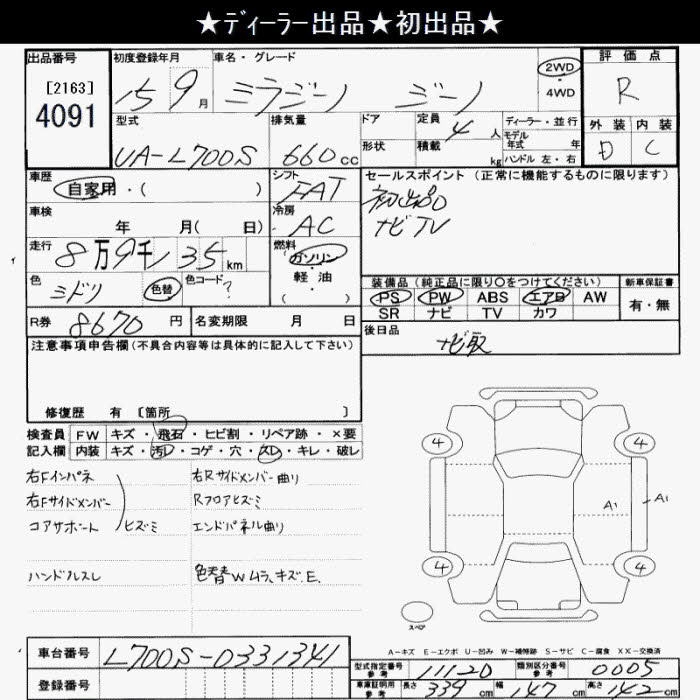 ★ディーラー出品★初出品★
出品番号 初度登録年月 車名・グレード 評価点
[2163] 4091
15 9月 ミラジーノ ジーノ 2WD ・ 4WD R
型式 排気量 ドア 定員 4人 ディーラー・並行 外装 内装
モデル年式 年
UA-L700S 660cc 形状 積載 kg ハンドル 左・右 D C
車歴 シフト セールスポイント (正常に機能するものに限ります)
自家用・( ) FAT 初出品
車検 冷房 ナビTV
年 月( 日) AC
走行 燃料
8万9千135km ガソリン
色 色コード 軽油 装備品 (純正品に限り○をつけてください) 新車保証書
ミドリ 色替 ? ( ・ ) PS PW ABS エアB AW 有・無
SR ナビ TV カワ
R券 8670円 名変期限 月 日 後日品
ナビ取
注意事項申告欄 (不具合内容等は具体的に記入して下さい)
修復歴 有 〔箇所 〕
検査員 FW キズ・飛石・ヒビ割・リペア跡・×要
記入欄 内装 キズ・汚レ・コゲ・穴・スレ・キレ・破レ
右Fインパネ 右Rサイドメンバー曲り
右Fサイドメンバー Rフロアヒズミ
コアサポート ヒズミ エンドパネル曲り
ハンドルスレ 色替Wムラ、キズ.E.
4 4
A1 A1
4 4
スペア
A-キズ E-エクボ U-凹み W-補修跡 S-サビ C-腐食 XX-交換済
車台番号 L700S-0331341
型式指定番号 参考 11120 類別区分番号 参考 0005
登録番号 車庫証明用 参考 長さ 339cm 幅 147cm 高さ 142cm